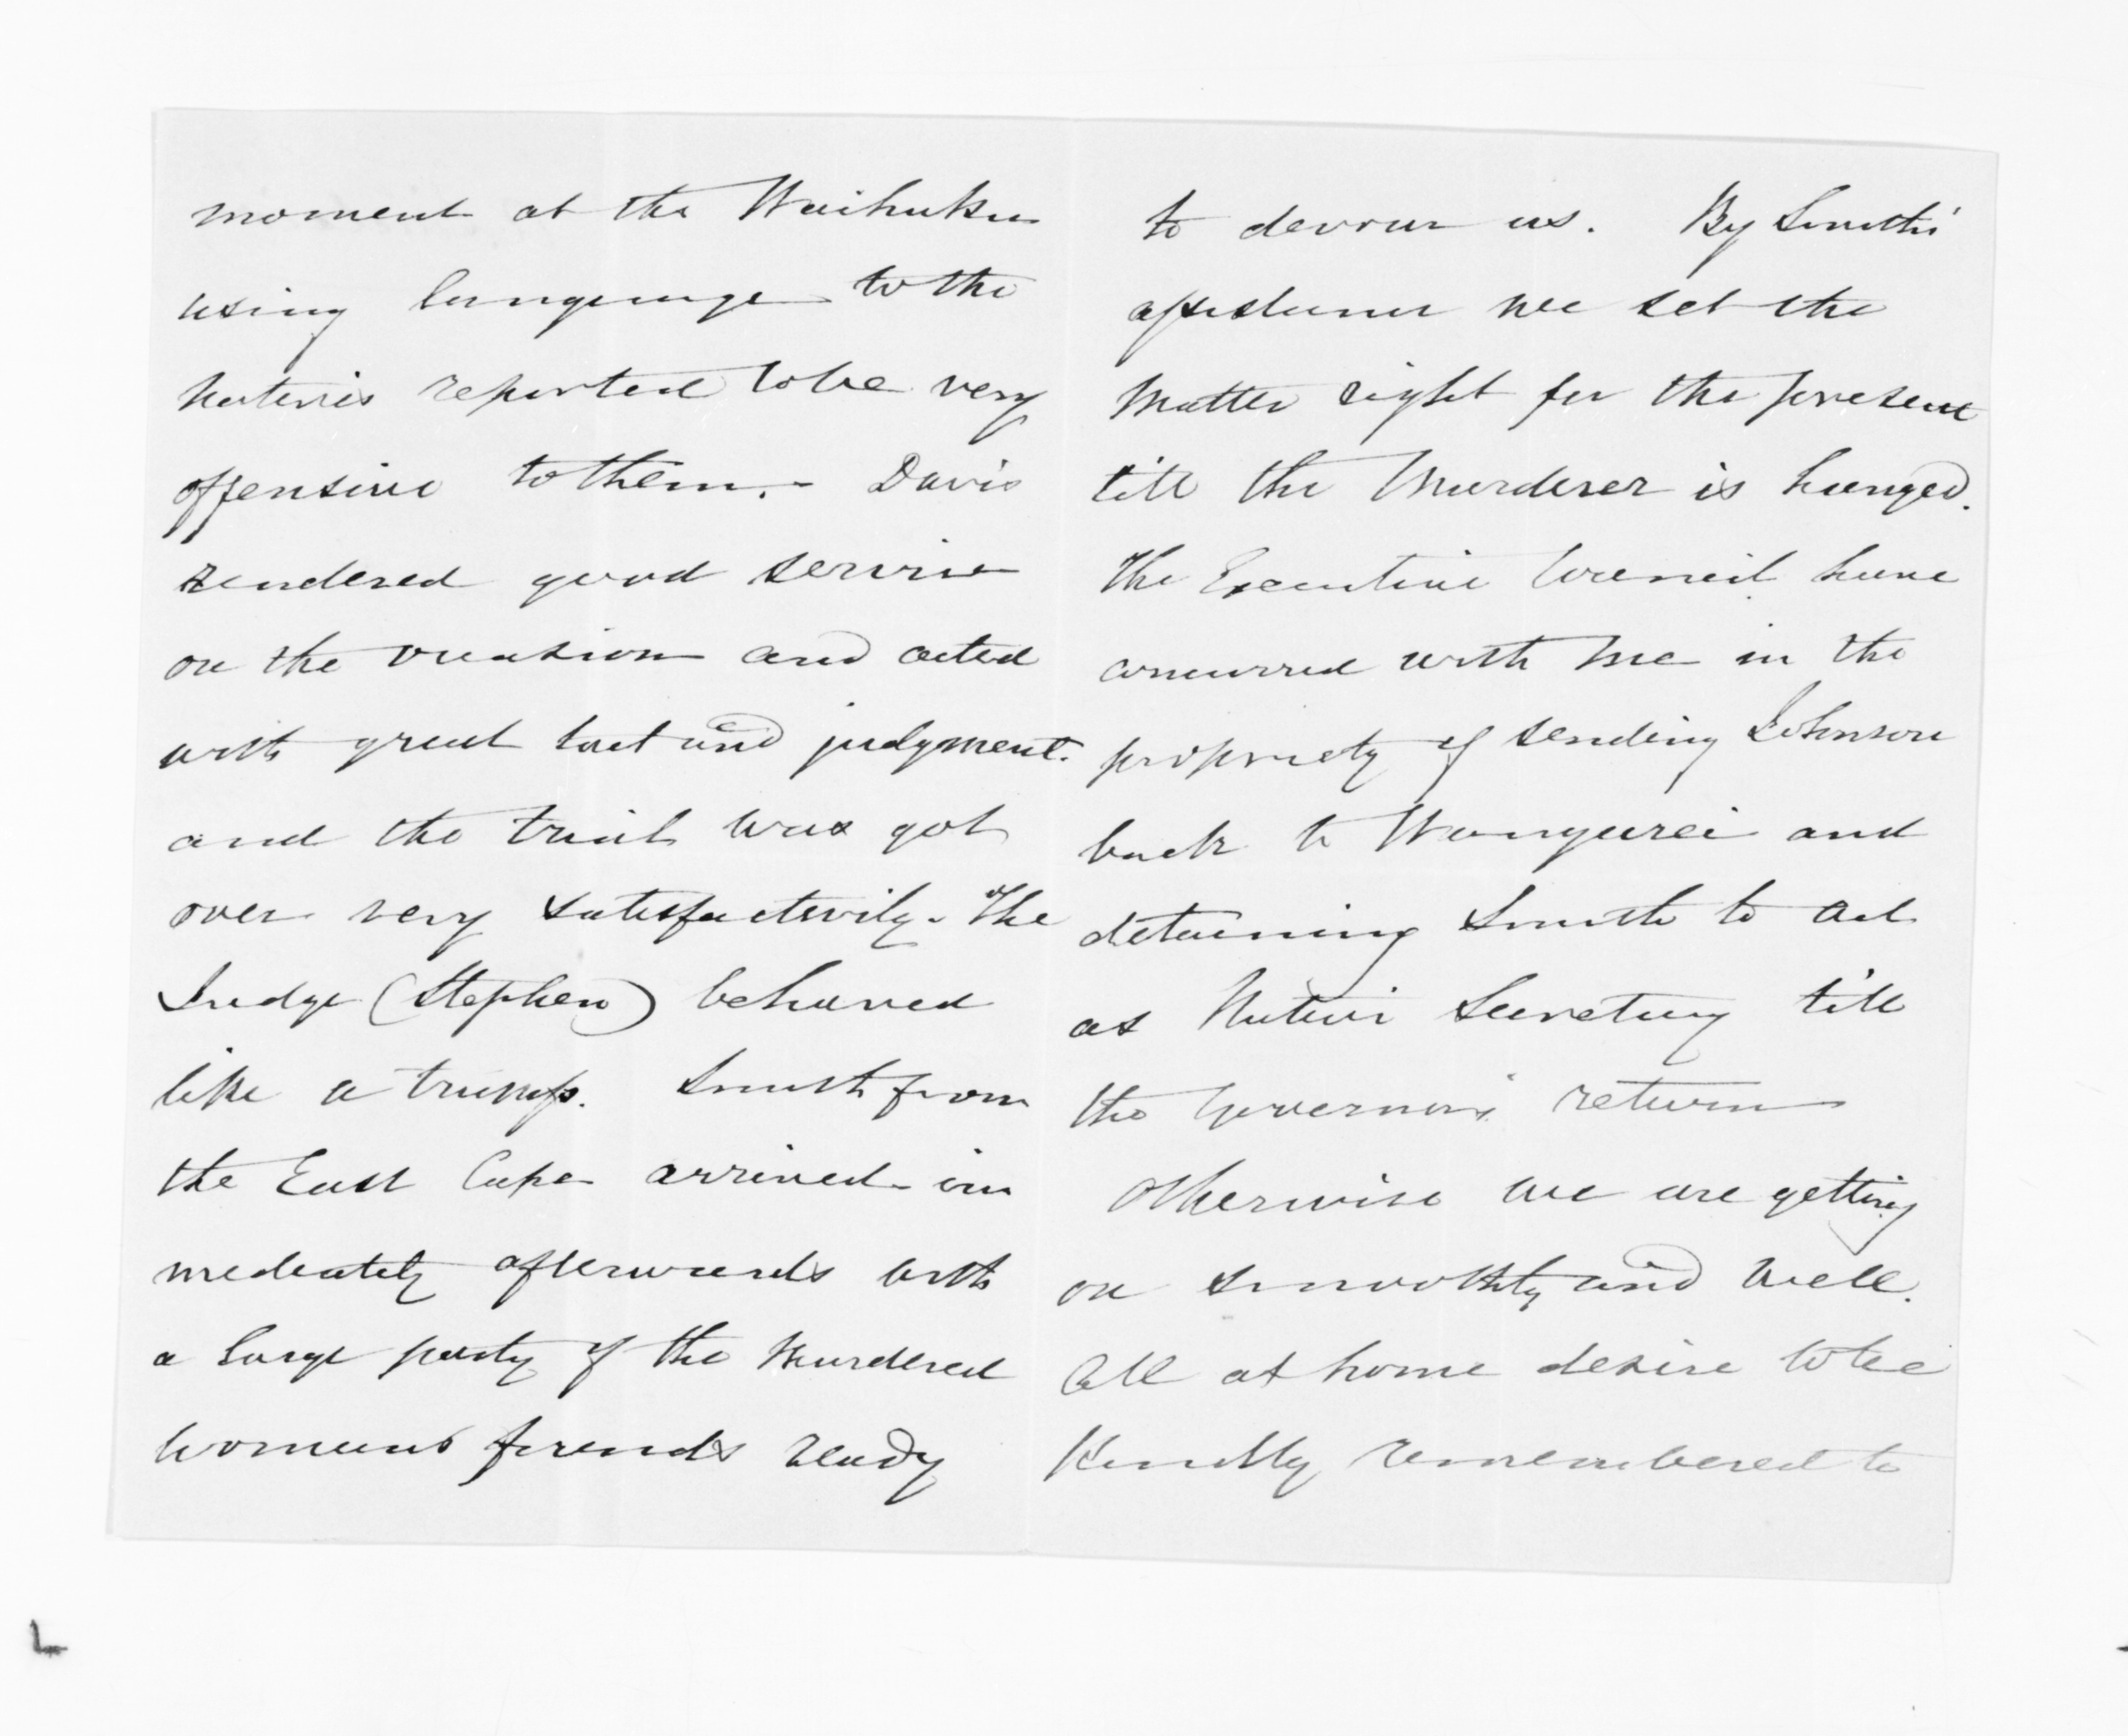 moment at the Waihuku
using language to the
Natives reported to be very
offensive to them. - Davis
rendered good service
on the occasion and acted
with great tact and judgment.
and the trial was got
over very satisfactorily. The
Judge (Stephen) behaved
like a trump. Smith from
the East Cape arrived im
mediately afterwards with
a large party of the Murdered
womans friends ready
to devour us. By Smiths'
assistance we set the
Matter right for the present
till the Murderer is hanged.
The Executive Council have
concurred with me in the
propriety of sending Johnson
back to Wangarei and
detaining Smith to act
as Native Secretary till
the Governor's return
Otherwise we are getting
on smoothly and well.
All at home desire to be
Kindly remembered to